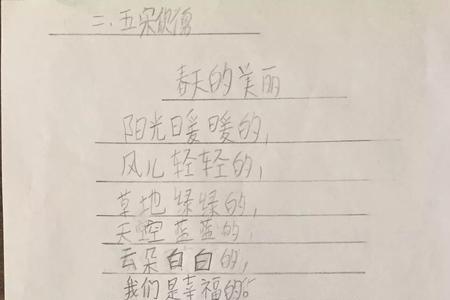 二、五
春天的美丽
阳光暖暖的,
风儿轻轻的,
草地绿绿的,
天空蓝蓝的,
云朵白白的,
我们是幸福的。